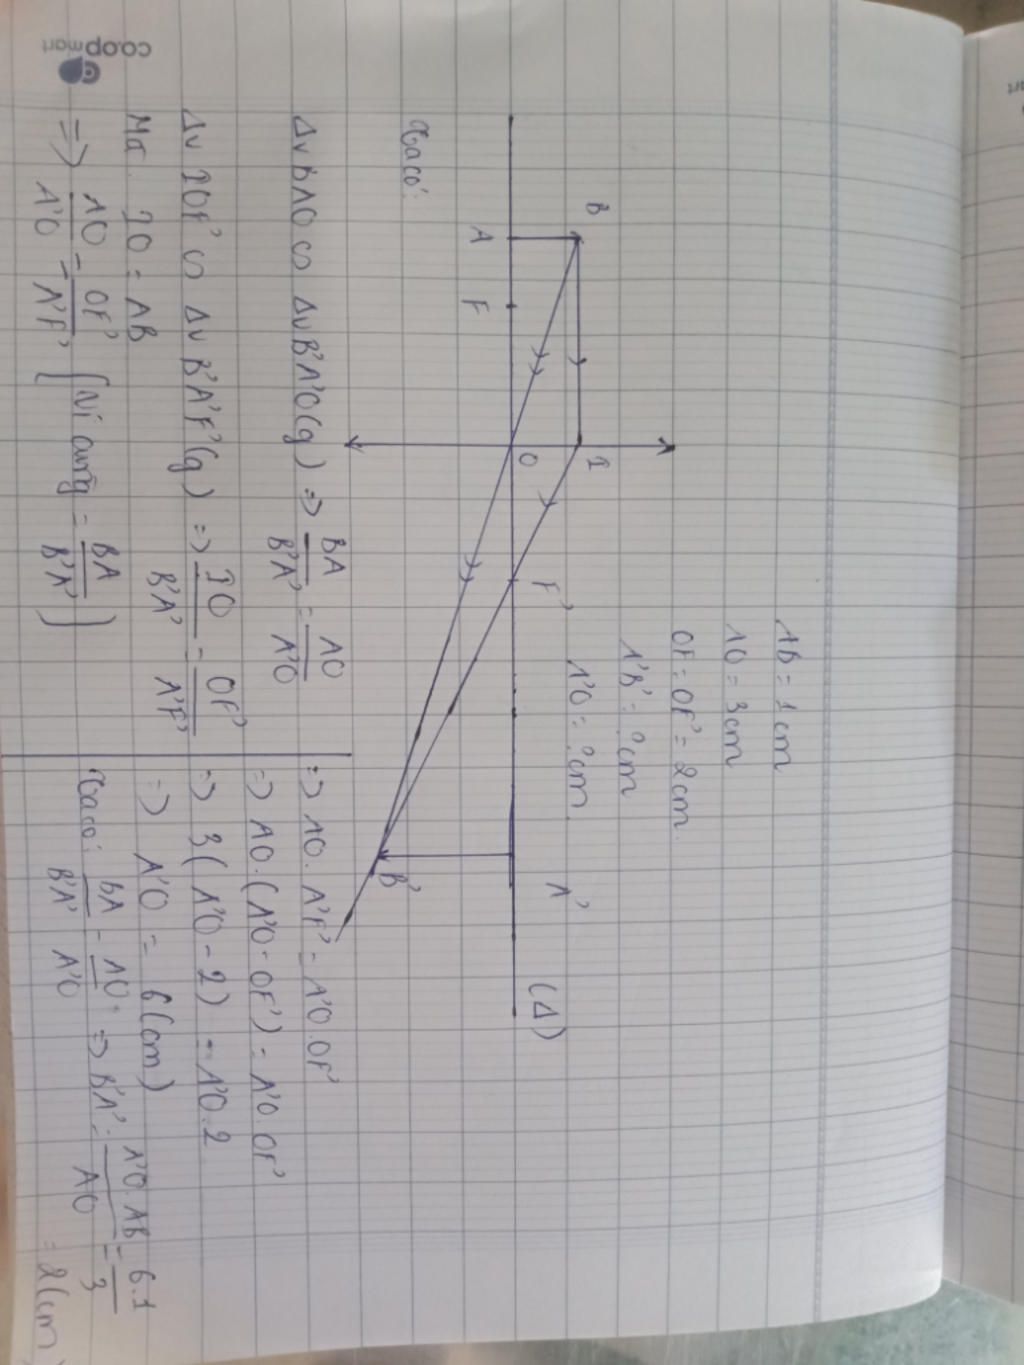 AB = 1cm
AO = 3cm
OF = OF' = 2cm.
A'B' = ? cm
A'O = ? cm
B
I
(Δ)
A
F
O
F'
A'
B'
Ta có:
Δv BAO ∽ Δv B'A'O (g) => BA/B'A' = AO/A'O
Δv IOF' ∽ Δv B'A'F' (g) => IO/B'A' = OF'/A'F'
Mà IO = AB
=> AO/A'O = OF'/A'F' (Vì cùng = BA/B'A')
=> AO. A'F' = A'O. OF'
=> AO. (A'O - OF') = A'O. OF'
=> 3 (A'O - 2) = A'O. 2
=> A'O = 6 (cm)
Ta có: BA/B'A' = AO/A'O => B'A' = A'O. AB/AO = 6.1/3
= 2 (cm)
co.opmart